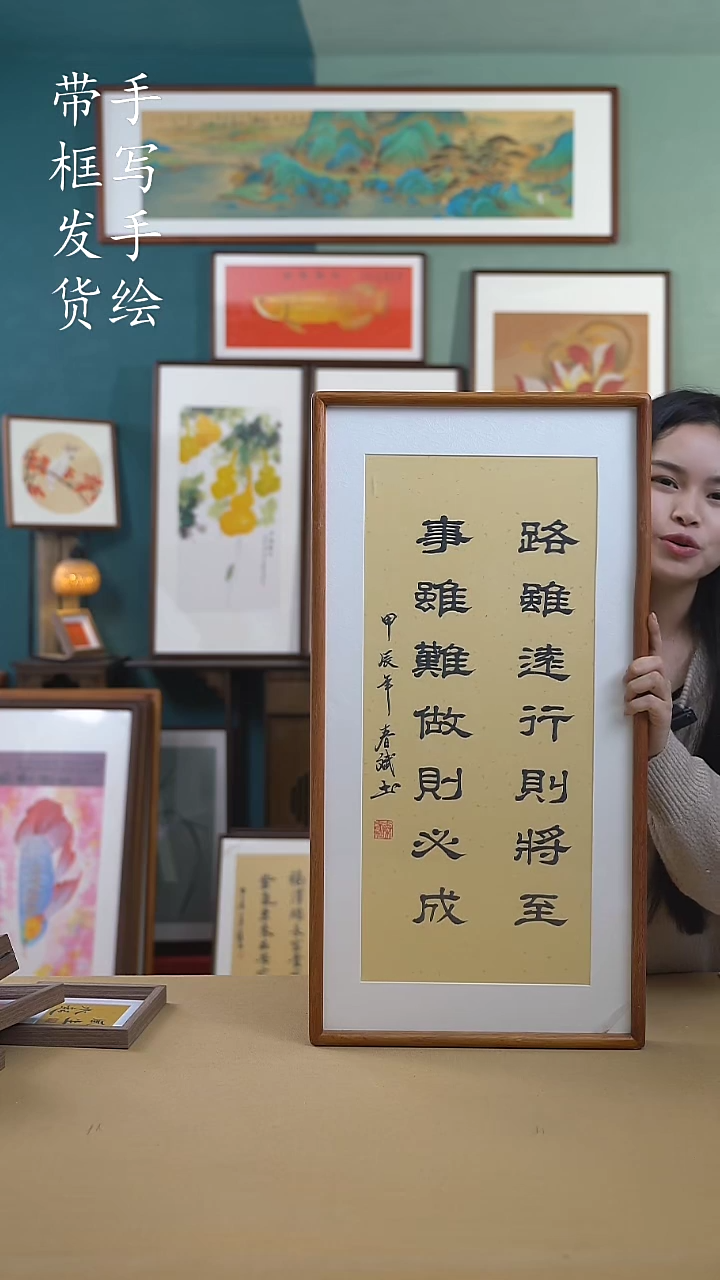 手写手绘
带框发货
路雖遠行則將至
事雖難做則必成
甲辰年春斌书